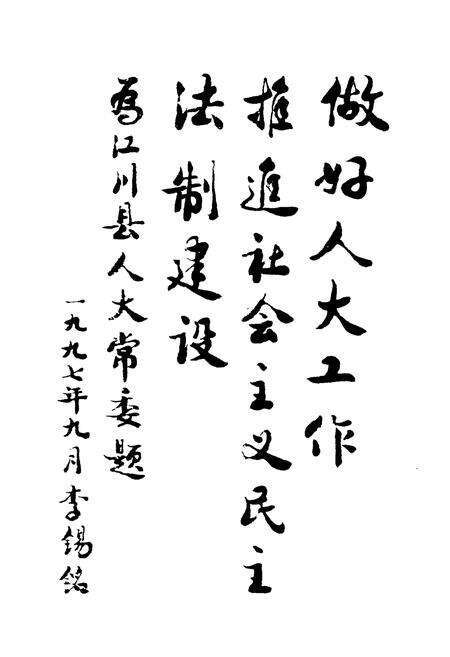 做好人大工作
推進社会主义民主
法制建设
为江川县人大常委题
一九九七年九月李锡铭